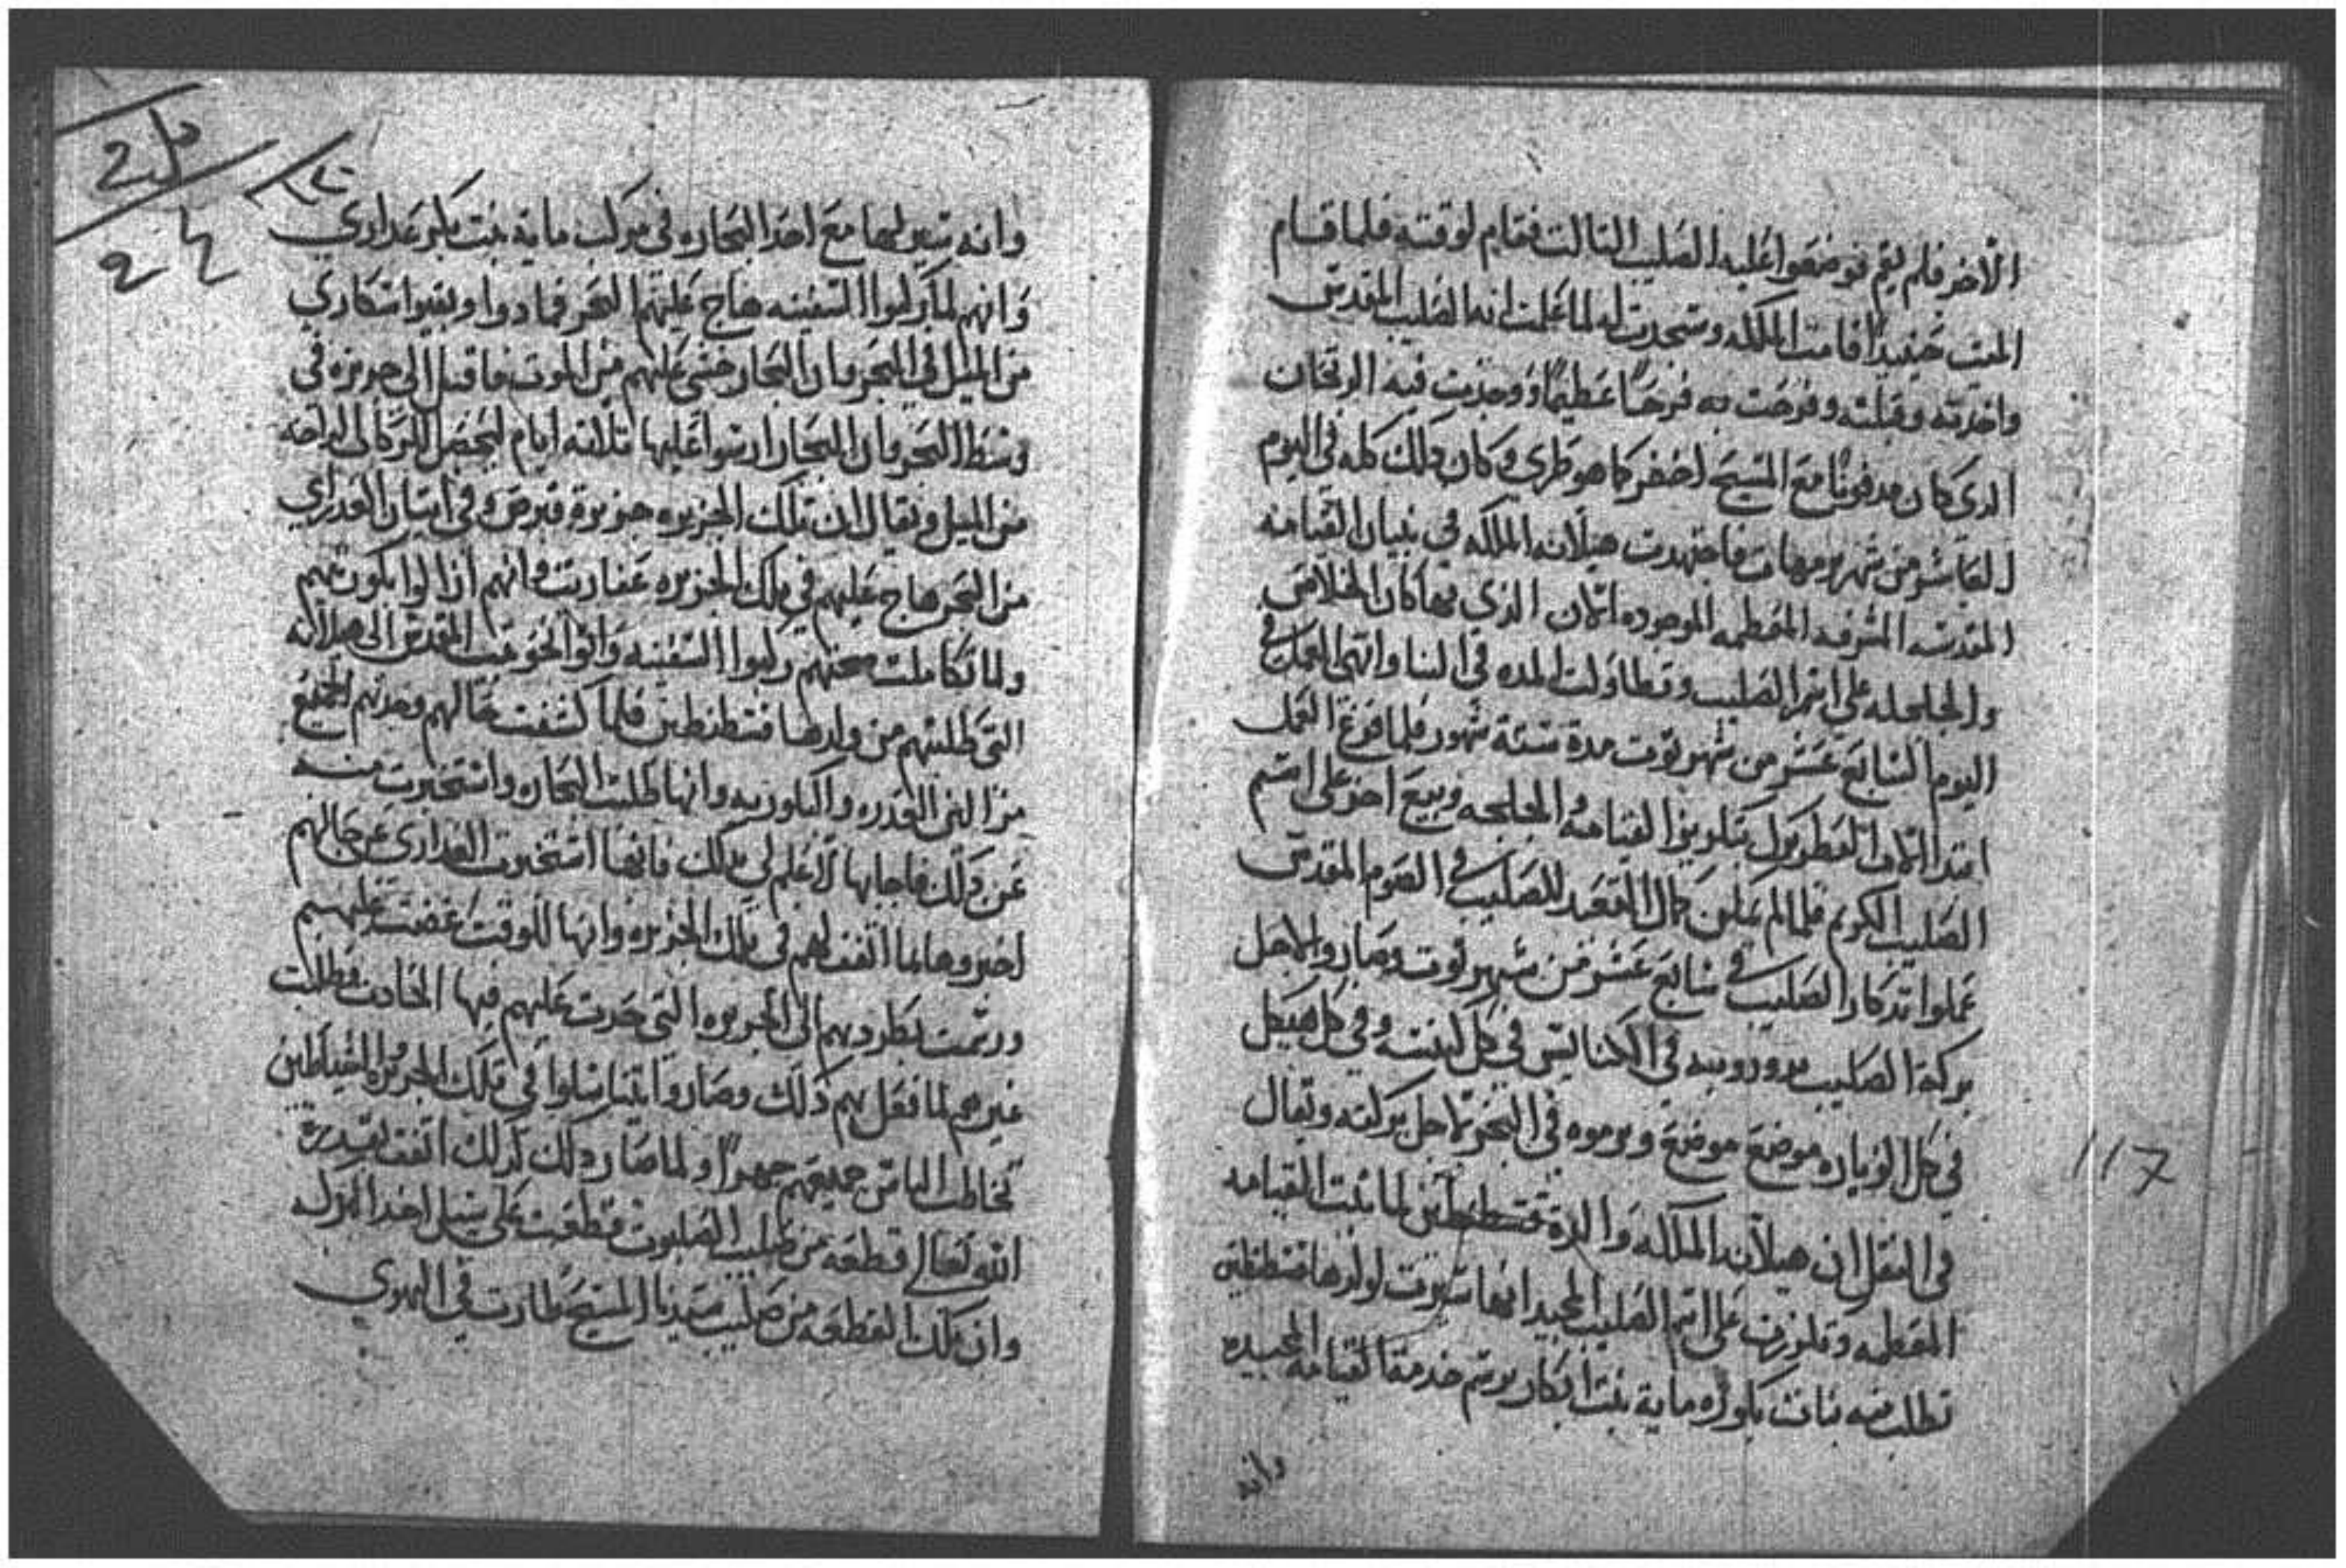 الاخر فلم يقم فوضعوا عليه الصليب التالت فقام لوقته فلما قام
الميت حينيدا قامت الملكه وسجدت له لما علمت انه الصليب المقدس
واخدته وقبلته وفرحت به فرحًا عظيمًا ووجدت فيه الريحان
الدي كان مدفونًا مع المسيح اخضر كما هو طري وكان دلك كله في اليوم
العاشر من شهر برمهات فاجتهدت هيلانه الملكه في بنيان القيامه
المقدسه الشرفه المعظمه الموجوده الان الذي بها كان الخلاص
والجلجله على اسم الصليب وقطاولت المده في البنا وانتهى العمل في
اليوم السابع عشر من شهر توت مدة ستة شهور فلما فرغ العمل
ابتدا البطريرك بتكريز القيامه والجلجه وبيع اخر على اسم
الصليب الكريم فلما لم يمكن كمال القصد للصليب في الصوم المقدس
عملوا تدكار الصليب في سابع عشر من شهر توت وصاروا لاجل
بركة الصليب يدوروبيه في الكنايس في كل كنيسه وفي كل هيكل
في كل الزياره موضع موضع ويرموه في البحر لاجل بركته ويقال
في النقل ان هيلانه الملكه والدة قسطنطين لما بنت القيامه
المعظمه وتكرزت على اسم الصليب المجيد انها سيرت لولدها قسطنطين
تطلب منه بنات بكوره ماية بنت ابكار برسم خدمة القيامه المجيده
وانه
117
وانه سير لها مع احد البحاره في مركب ماية بنت بكر عداري
وانهم لما ركبوا السفينه هاج عليهم البحر فمادوا وبقيوا سكاري
من الميل في البحر وان البحار خشي عليهم من الموت فاقبل الى جزيره في
وسط البحر وان البحار ارسوا عليها تلاته ايام ليحصل للركاب الراحه
من الميل ويقال ان تلك الجزيره جزيرة قبرص وفي اتيان العداري
من البحر هاج عليهم في تلك الجزيره عفاريت وانهم ازالوا بكوريتهم
ولما تكاملت صحتهم ركبوا السفينه واتوا نحو بيت المقدس الى هيلانه
التي طلبتهم من ولدها قسطنطين فلما كشفت حالهم وجدتهم الجميع
عن دلك فاجابها لا علم لي بدلك فانها استخبرت العداري عن حالهم
اخبروها بما اتفق لهم في تلك الجزيره وانها للوقت غضبت عليهم
ورسمت بطردهم الى الجزيره التي جدت عليهم فيها الحادت وطلبت
غيرهم لما فعل بهم دلك وصاروا يتناسلوا في تلك الجزيره والشياطين
تخاطب الناس جميعهم جهرًا ولما صار دلك كدلك اتفق بقدرة
الله تعالى قطعه من صليب الصلبوت قطعت على سبيل اخد البركه
وان تلك القطعه من صليب سيدنا المسيح طارت في الهوي